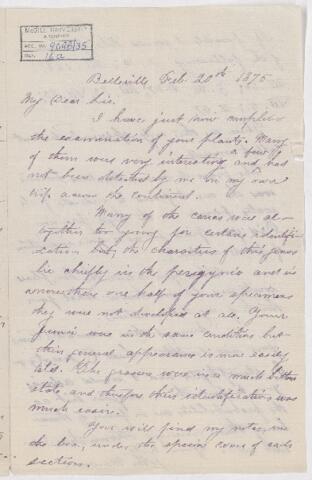 McGILL UNIVERSITY
ACC. NO. 9045/35
REF. 16a
Belleville Feb. 20th 1875
My Dear Sir.
I have just now completed
the examination of your plants. Many
of them were very interesting and a few had
not been detected by me in my own
trip across the continent.
Many of the carices were al-
together too young for certain identifi-
cation but, the characters of this genus
lie chiefly in the perigynia and in
more than one half of your specimens
they were not developed at all. Your
Junci were in the same condition but
their general appearance is more easily
told. The grasses were in a much better
state and therefore their identification was
much easier.
You will find my notes, in
the box, under the species cover of each
section.